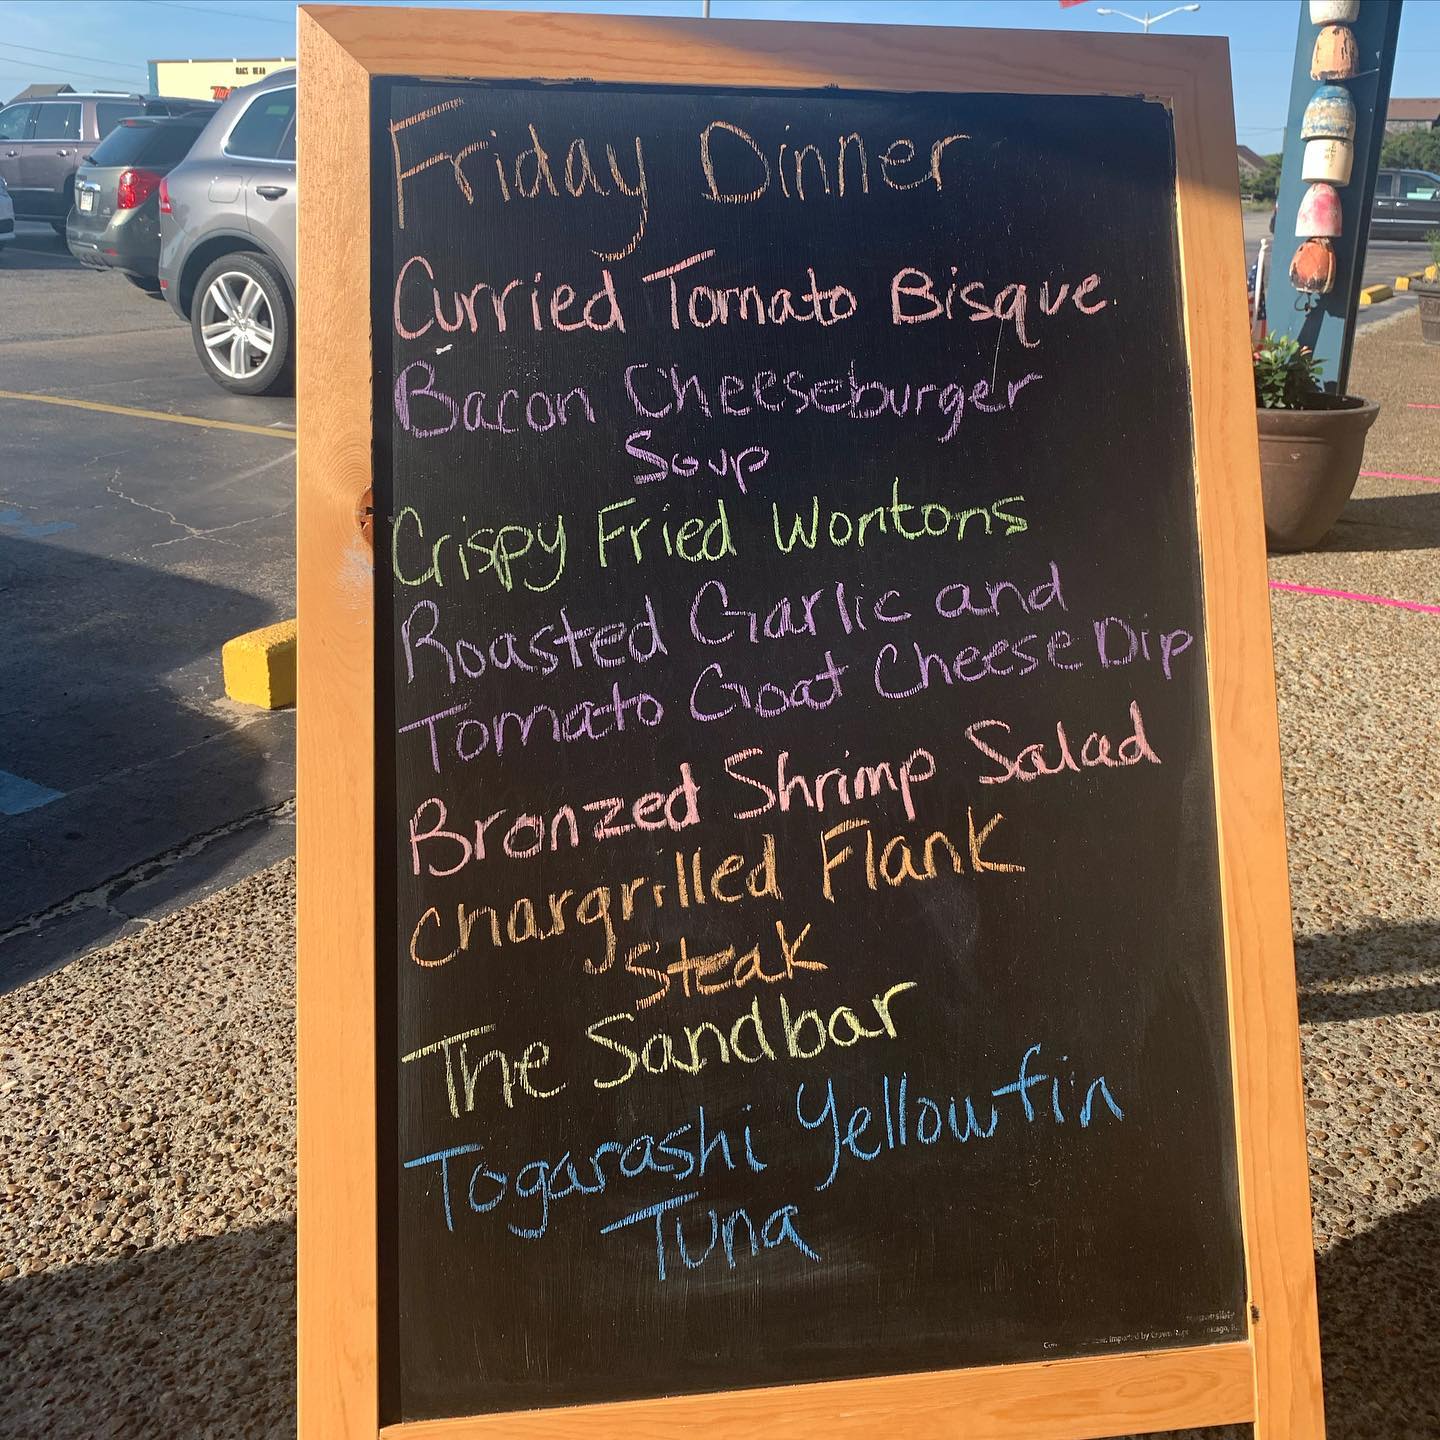 Friday Dinner
Curried Tomato Bisque
Bacon Cheeseburger
Soup
Crispy Fried Wontons
Roasted Garlic and
Tomato Goat Cheese Dip
Bronzed Shrimp Salad
Chargrilled Flank
Steak
The Sandbar
Togarashi Yellowfin
Tuna
imported by Crown